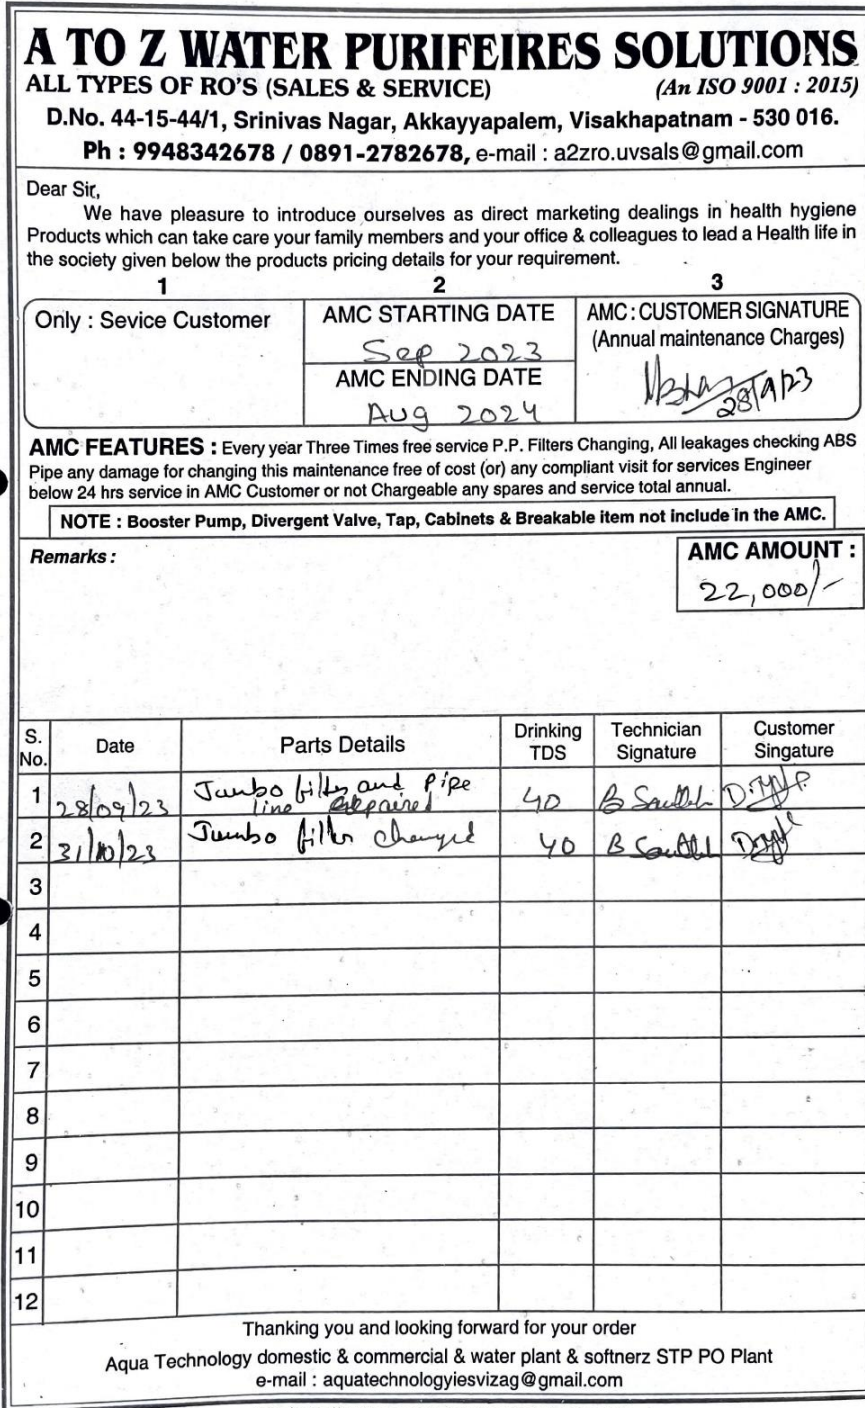 A TO Z WATER PURIFEIRES SOLUTIONS
ALL TYPES OF RO'S (SALES & SERVICE) (An ISO 9001 : 2015)
D.No. 44-15-44/1, Srinivas Nagar, Akkayyapalem, Visakhapatnam - 530 016.
Ph : 9948342678 / 0891-2782678, e-mail : a2zro.uvsals@gmail.com
Dear Sir,
We have pleasure to introduce ourselves as direct marketing dealings in health hygiene
Products which can take care your family members and your office & colleagues to lead a Health life in
the society given below the products pricing details for your requirement.
1 2 3
Only : Sevice Customer
AMC STARTING DATE
Sep 2023
AMC ENDING DATE
Aug 2024
AMC : CUSTOMER SIGNATURE
(Annual maintenance Charges)
28/9/23
AMC FEATURES : Every year Three Times free service P.P. Filters Changing, All leakages checking ABS
Pipe any damage for changing this maintenance free of cost (or) any compliant visit for services Engineer
below 24 hrs service in AMC Customer or not Chargeable any spares and service total annual.
NOTE : Booster Pump, Divergent Valve, Tap, Cabinets & Breakable item not include in the AMC.
Remarks :
AMC AMOUNT :
22,000/-
S. No. Date Parts Details Drinking TDS Technician Signature Customer Singature
1 28/09/23 Jumbo filter and Pipe line repaired 40 B
2 31/10/23 Jumbo filter changed 40 B
3
4
5
6
7
8
9
10
11
12
Thanking you and looking forward for your order
Aqua Technology domestic & commercial & water plant & softnerz STP PO Plant
e-mail : aquatechnologyiesvizag@gmail.com